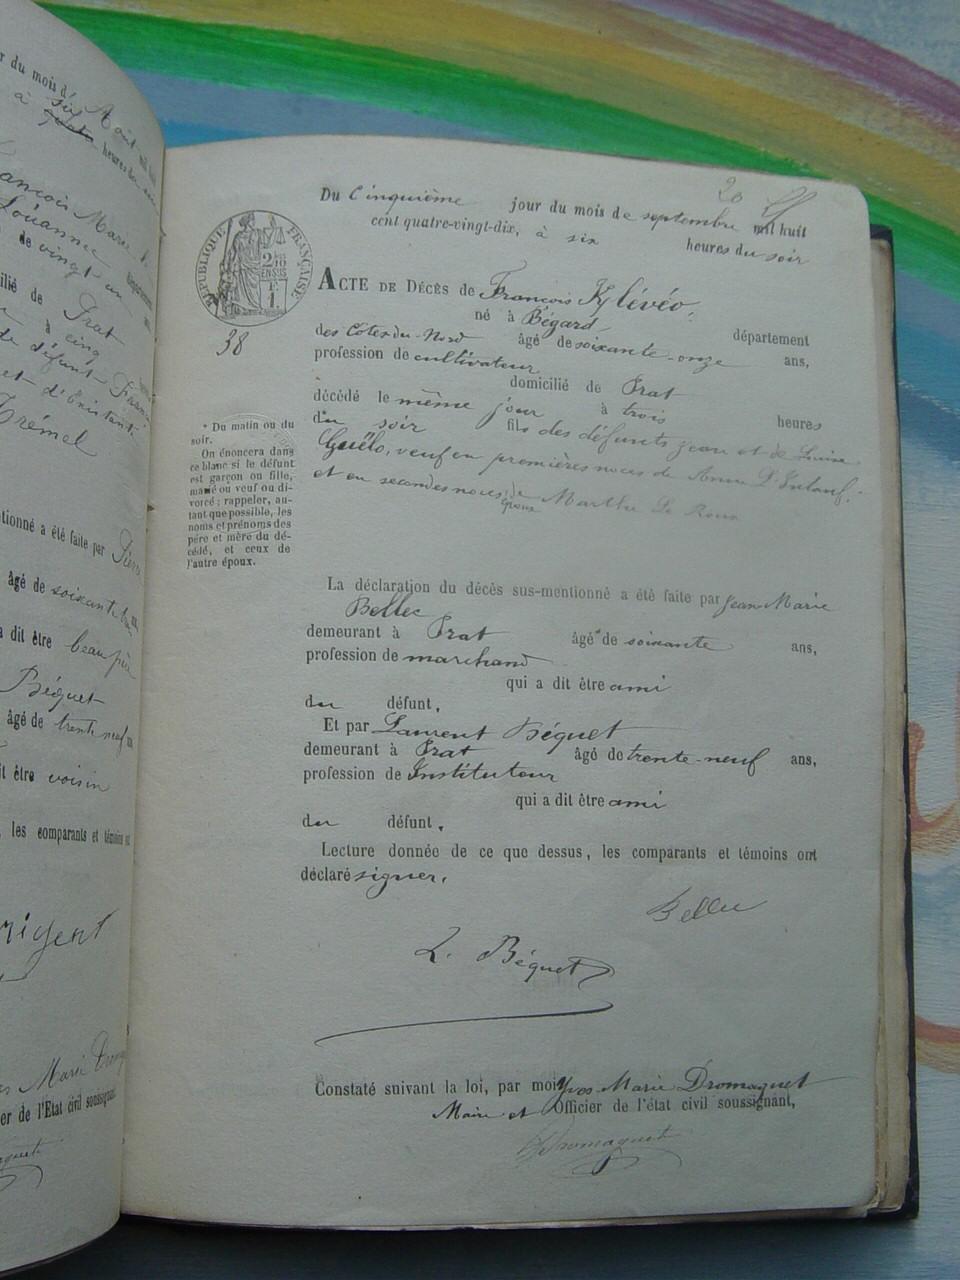 r du mois d' Août mil huit
à six
quatre heures du soir
ançois Marie
Louannec
de vingt un
ilié de Prat
à cinq
de défunt
et d'
Trémel
tionné a été faite par Pierre
âgé de soixante
a dit être beau père
Béquet
âgé de trente neuf
it être voisin
, les comparants et témoins ont
rigent
Marie Dromaguet
er de l'Etat civil soussignant
20
Du Cinquième jour du mois de septembre mil huit
cent quatre-vingt-dix, à six heures du soir
RÉPUBLIQUE FRANÇAISE
2/10 EN SUS
F. 1.
38
ACTE DE DÉCÈS de François Klévéo,
né à Bégard département
des Côtes-du-Nord âgé de soixante-onze ans,
profession de cultivateur
domicilié de Prat
décédé le même jour à trois heures
du soir fils des défunts Jean et de Louise
Guélo, veuf en premières noces de Anne
et en secondes noces, époux de Marthe Le Roux
* Du matin ou du
soir.
On énoncera dans
ce blanc si le défunt
est garçon ou fille,
marié ou veuf ou di-
vorcé ; rappeler, au-
tant que possible, les
noms et prénoms des
père et mère du dé-
cédé, et ceux de
l'autre époux.
La déclaration du décès sus-mentionné a été faite par Jean Marie
Bellec
demeurant à Prat âgé de soixante ans,
profession de marchand
qui a dit être ami
du défunt,
Et par Laurent Béquet
demeurant à Prat âgé de trente-neuf ans,
profession de Instituteur
qui a dit être ami
du défunt,
Lecture donnée de ce que dessus, les comparants et témoins ont
déclaré signer.
Bellec
L. Béquet
Constaté suivant la loi, par moi Yves Marie Dromaguet
Maire et Officier de l'état civil soussignant,
Dromaguet